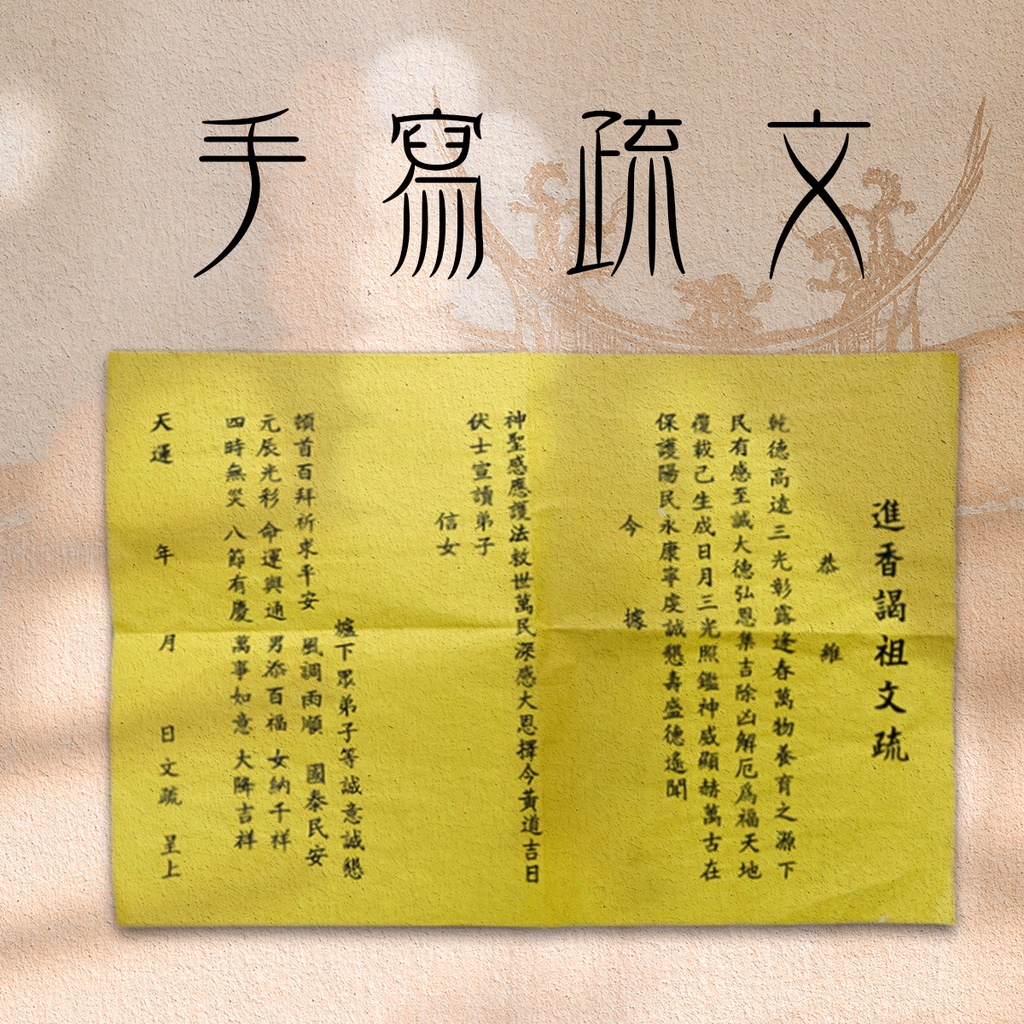 手寫疏文
進香謁祖文疏
恭維
乾德高遠三光彰露逢春萬物養育之源下
民有感至誠大德弘恩集吉除凶解厄為福天地
覆載己生成日月三光照鑑神威顯赫萬古在
保護陽民永康寧虔誠懇壽盛德遙聞
今據
神聖感應護法救世萬民深感大恩擇今黃道吉日
伏士宣讀弟子
信女
爐下眾弟子等誠意誠懇
頓首百拜祈求平安 風調雨順 國泰民安
元辰光彩 命運與通 男添百福 女納千祥
四時無災 八節有慶 萬事如意 大降吉祥
天運 年 月 日文疏 呈上